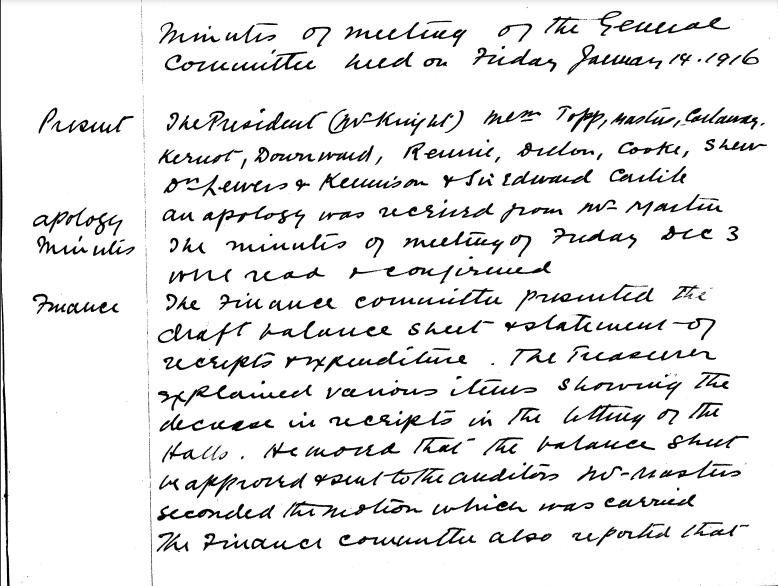 Minutes of meeting of the General
Committee held on Friday January 14. 1916
Present The President (Mr Knight) Messrs Topp, Masters, Callaway,
Kernot, Downward, Rennie, Dillon, Cooke, Shew
Drs Lewers & Kennison & Sir Edward Carlile
apology an apology was received from Mr Martin
Minutes The minutes of meeting of Friday Dec 3
were read & confirmed
Finance The Finance committee presented the
draft balance sheet & statement of
receipts & expenditure. The Treasurer
explained various items showing the
decrease in receipts in the letting of the
Halls. He moved that the balance sheet
be approved & sent to the auditors Mr Masters
seconded the motion which was carried
The Finance committee also reported that